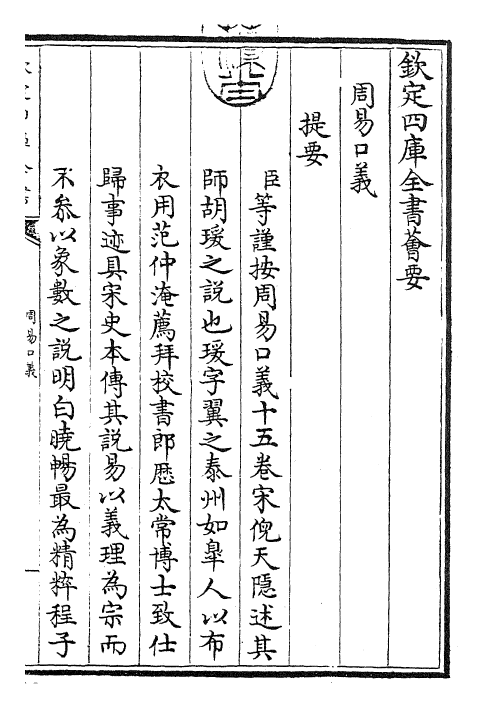 欽定四庫全書薈要
周易口義
提要
臣等謹按周易口義十五卷宋倪天隱述其
師胡瑗之說也瑗字翼之泰州如皋人以布
衣用范仲淹薦拜校書郎歴太常博士致仕
歸事迹具宋史本傳其說易以義理為宗而
不叅以象數之說明白曉暢最為精粹程子
周易口義